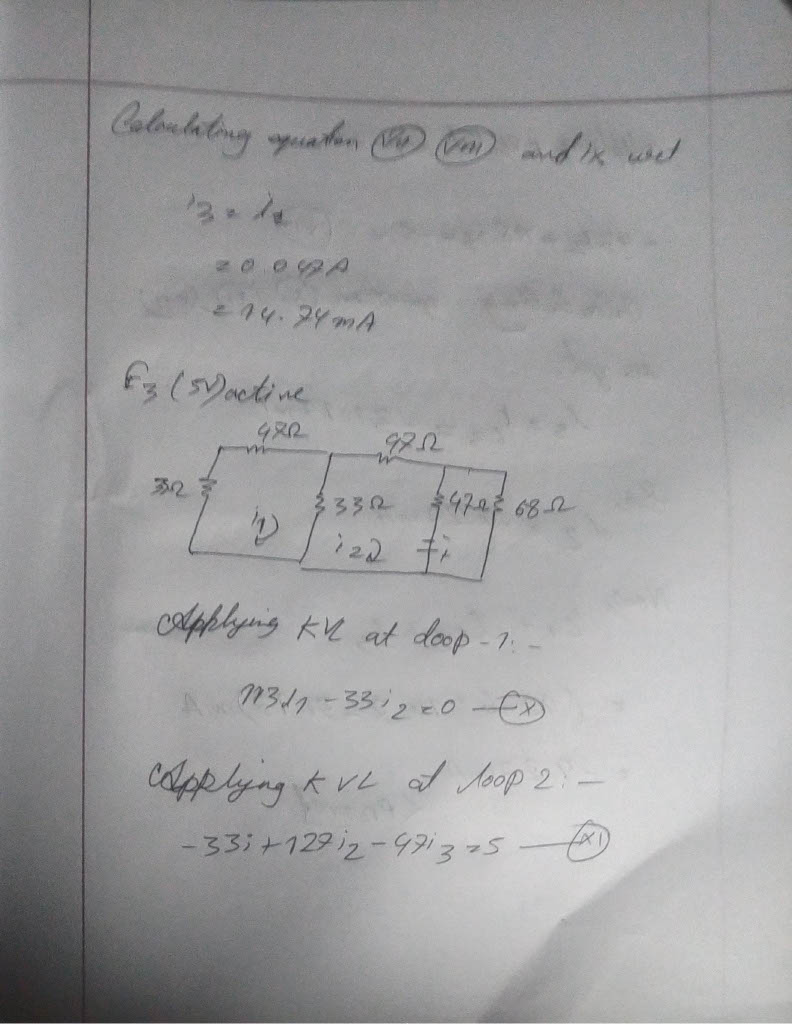 Calculating equation VII VIII and ix we
i3 = i
= 0.047A
= 14.74mA
E3 (5V) active
47Ω
47Ω
33Ω
47Ω
68Ω
i1
i2
i
Applying KVL at loop - 1: -
113i1 - 33i2 = 0 — X
Applying KVL at loop 2: —
-33i + 127i2 - 47i3 = 5 — XI